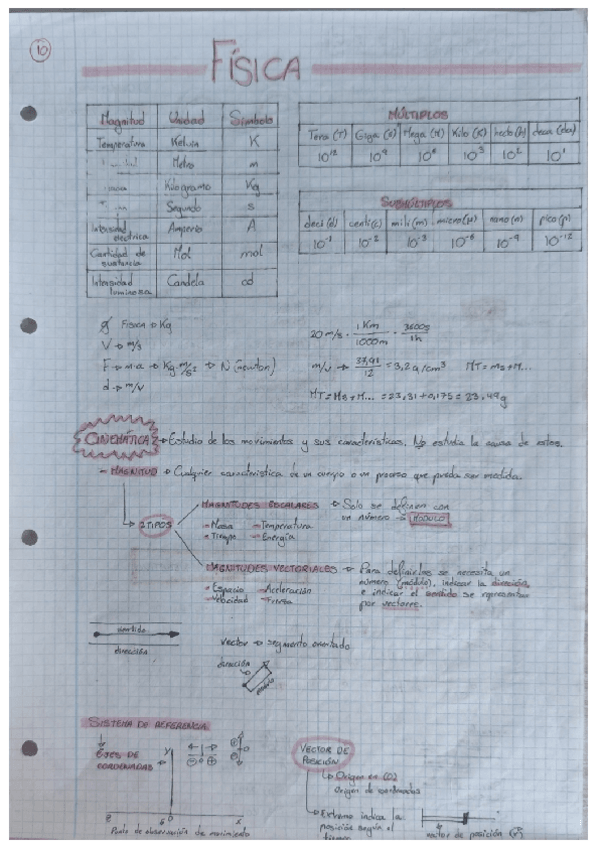 10
FÍSICA
Magnitud Unidad Símbolo
Temperatura Kelvin K
Metro m
Kilogramo Kg
Segundo s
Intensidad eléctrica Amperio A
Cantidad de sustancia Mol mol
Intensidad luminosa Candela cd
MÚLTIPLOS
Tera (T) Giga (G) Mega (M) Kilo (K) hecto (h) deca (da)
10¹² 10⁹ 10⁶ 10³ 10² 10¹
SUBMÚLTIPLOS
deci (d) centi (c) mili (m) micro (μ) nano (n) pico (p)
10⁻¹ 10⁻² 10⁻³ 10⁻⁶ 10⁻⁹ 10⁻¹²
Física → Kg
V → m/s
F → m·a → Kg·m/s² → N (newton)
d → m/V
20 m/s · 1 Km/1000m · 3600s/1h
m/V → /12 = 3,2 g/cm³ MT = ms + M...
MT = Ms + M... = 23,31 + 0,175 = 23,49 g
CINEMÁTICA → Estudio de los movimientos y sus características. No estudia la causa de estos.
- MAGNITUD → Cualquier característica de un cuerpo o un proceso que pueda ser medida.
2 TIPOS
MAGNITUDES ESCALARES → Solo se definen con
un número → MÓDULO
- Masa - Temperatura
- Tiempo - Energía
MAGNITUDES VECTORIALES → Para definirlas se necesita un
número (módulo), indicar la dirección
e indicar el sentido se representan
por vectores.
- Espacio - Aceleración
- Velocidad - Fuerza
sentido
dirección
Vector → segmento orientado
dirección
módulo
SISTEMA DE REFERENCIA
EJES DE COORDENADAS
y
x
O
Punto de observación de movimiento
VECTOR DE POSICIÓN
→ Origen en (O)
Origen de coordenadas
→ Extremo indica la
posición según el
tiempo
vector de posición (r⃗)